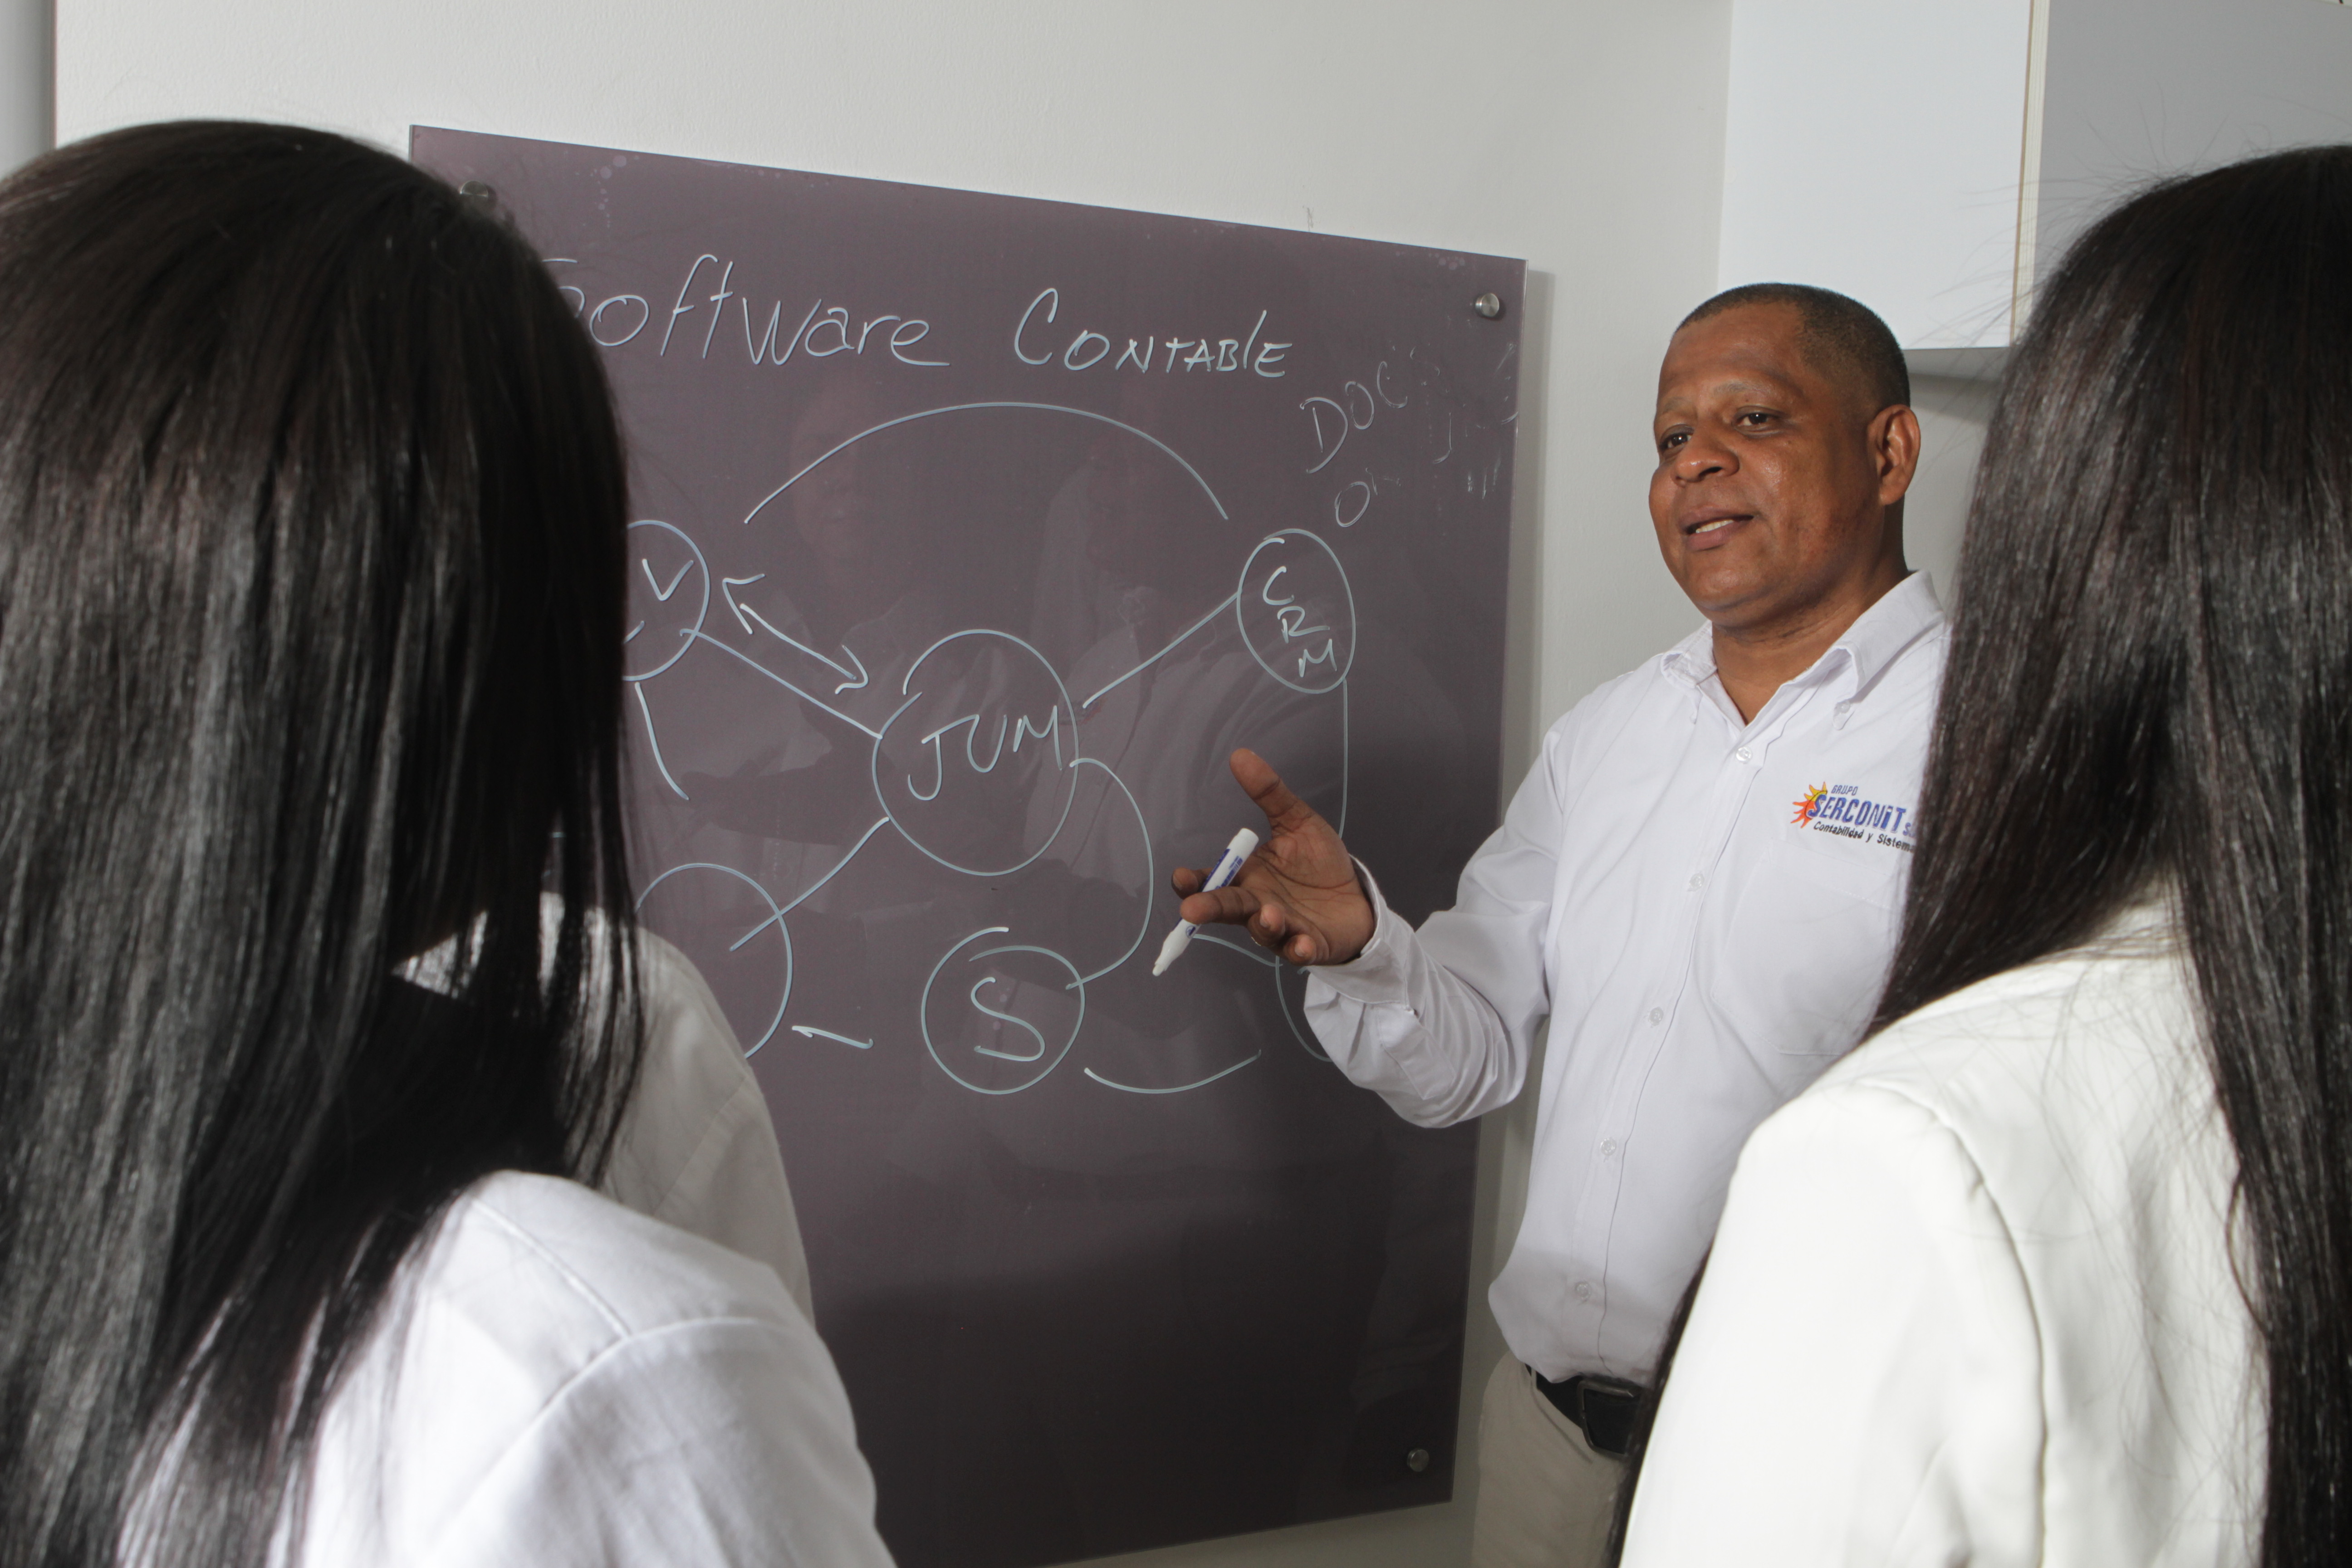 Software CONTABLE
DOC
V
C
R
M
JUM
GRUPO
SERCONIT
Contabilidad y Sistema
S